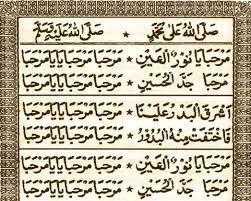 صَلَّى اللهُ عَلَى مُحَمَّدٍ * صَلَّى اللهُ عَلَيْهِ وَسَلَّمَ
مَرْحَبًا يَا نُوْرُ الْعَيْنِ * مَرْحَبًا مَرْحَبًا يَا يَا مَرْحَبًا
مَرْحَبًا جَدَّ الْحُسَيْنِ * مَرْحَبًا مَرْحَبًا يَا يَا مَرْحَبًا
أَشْرَقَ الْبَدْرُ عَلَيْنَا * مَرْحَبًا مَرْحَبًا يَا يَا مَرْحَبًا
فَاخْتَفَتْ مِنْهُ الْبُدُوْرُ * مَرْحَبًا مَرْحَبًا يَا يَا مَرْحَبًا
مَرْحَبًا يَا نُوْرُ الْعَيْنِ * مَرْحَبًا مَرْحَبًا يَا يَا مَرْحَبًا
مَرْحَبًا جَدَّ الْحُسَيْنِ * مَرْحَبًا مَرْحَبًا يَا يَا مَرْحَبًا